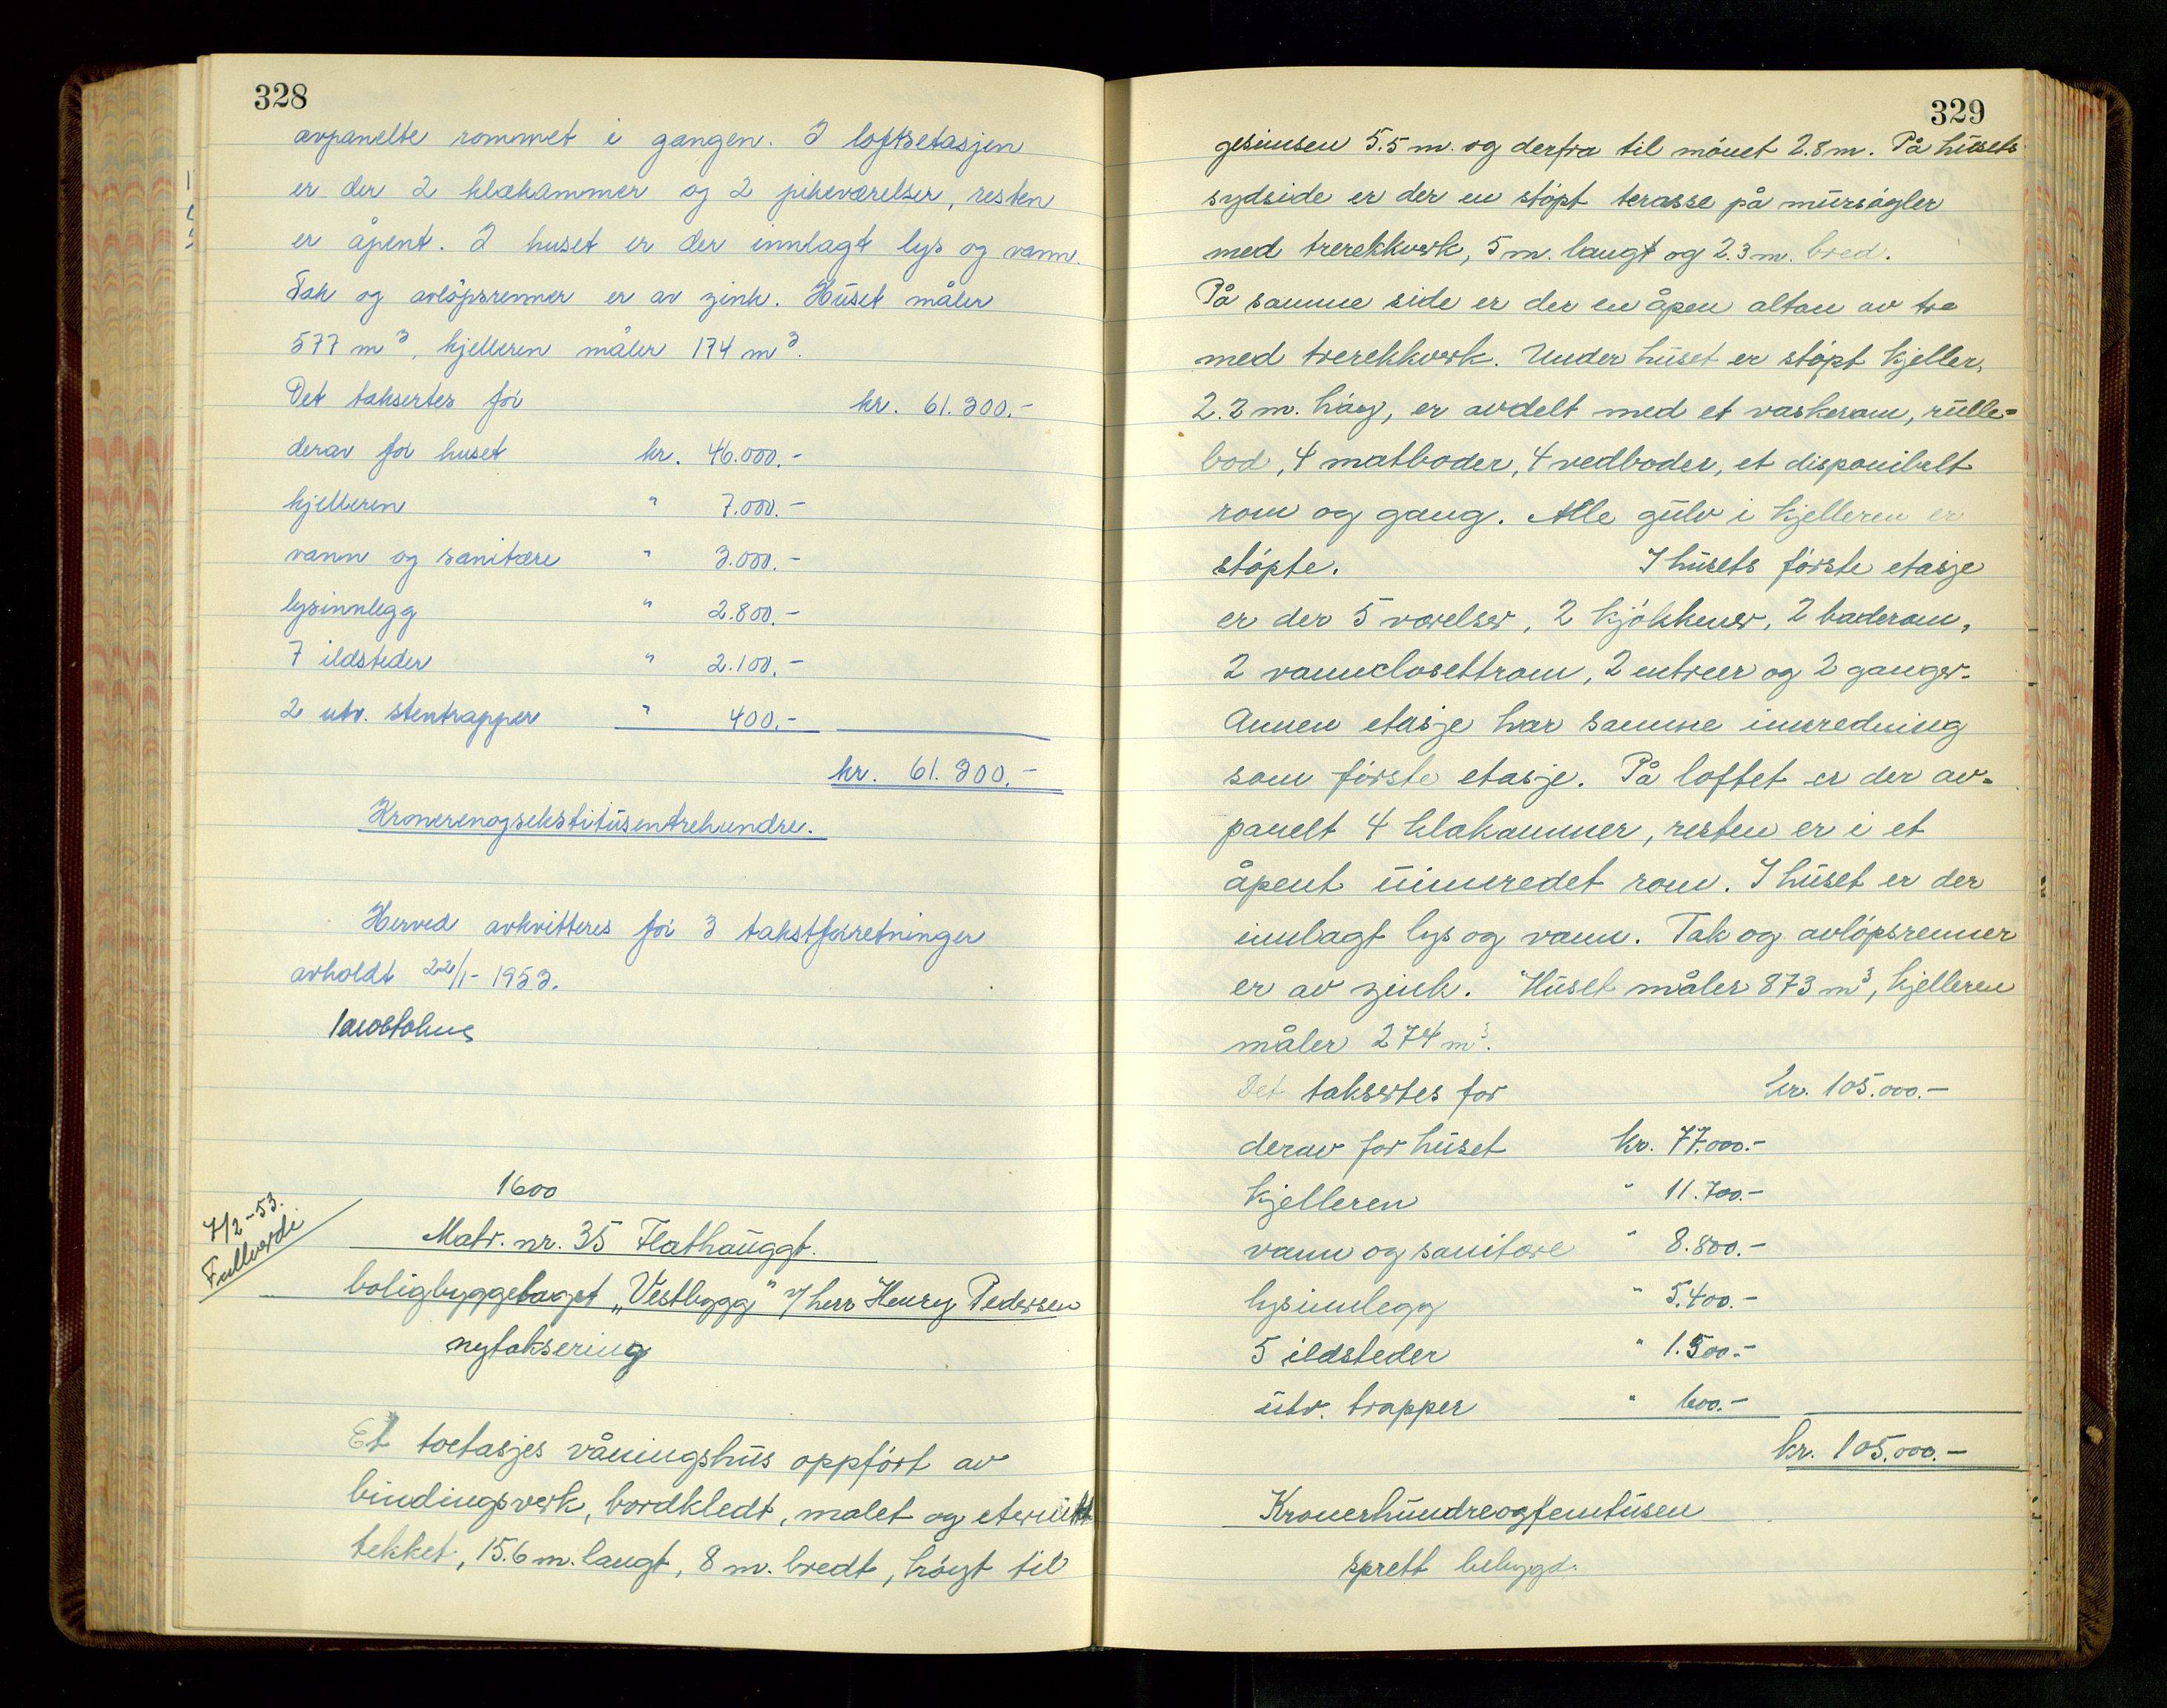 328
avpanelte rommet i gangen. I loftsetasjen
er der 2 klækammer og 2 pikeværelser, resten
er åpent. I huset er der innlagt lys og vann.
Tak og avløpsrenner er av zink. Huset måler
577 m³, kjelleren måler 174 m³.
Det taksertes for kr. 61.300.-
derav for huset kr. 46.000.-
kjelleren " 7.000.-
vann og sanitære " 3.000.-
lysinnlegg " 2.800.-
7 ildsteder " 2.100.-
2 utv. stentrapper " 400.-
kr. 61.300.-
Kronerenogsekstitusentrehundre.
Herved avkvitteres for 3 takstforretninger
avholdt 22/1-1953.
7/2-53.
Fullverdi
1600
Matr. nr. 35 Flathauggt.
boligbyggelaget „Vestbygg" v/ herr Henry Pedersen
nytaksering
Et toetasjes våningshus oppført av
bindingsverk, bordkledt, malet og eternitt
tekket, 15.6 m. langt, 8 m. bredt, høyt til
329
gesimsen 5.5 m. og derfra til mønet 2.8 m. På husets
sydside er der en støpt terasse på mursøgler
med trerekkverk, 5 m. langt og 2.3 m. bred.
På samme side er der en åpen altan av tre
med trerekkverk. Under huset er støpt kjeller,
2.2 m. høg, er avdelt med et vaskerom, rulle-
bod, 4 matboder, 4 vedboder, et disponibelt
rom og gang. Alle gulv i kjelleren er
støpte. I husets første etasje
er der 5 værelser, 2 kjøkkener, 2 baderom,
2 vannclosettrom, 2 entreer og 2 ganger.
Annen etasje har samme innredning
som første etasje. På loftet er der av-
panelt 4 klakammer, resten er i et
åpent uinnredet rom. I huset er der
innlagt lys og vann. Tak og avløpsrenner
er av zink. Huset måler 873 m³, kjelleren
måler 274 m³.
Det taksertes for kr. 105.000.-
derav for huset kr. 77.000.-
kjelleren " 11.700.-
vann og sanitære " 8.800.-
lysinnlegg " 5.400.-
5 ildsteder " 1.500.-
utv. trapper " 600.-
kr. 105.000.-
Kronerhundreogfemtusen
sprett bebygd.